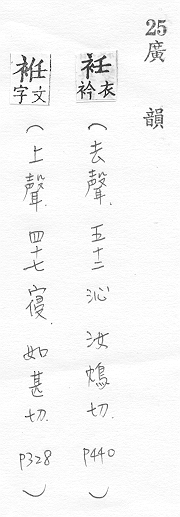 25廣韻
衽 衣衿 (去聲. 五十二沁 汝鴆切. P440)
袵 文字 (上聲. 四十七寑. 如甚切. P328)